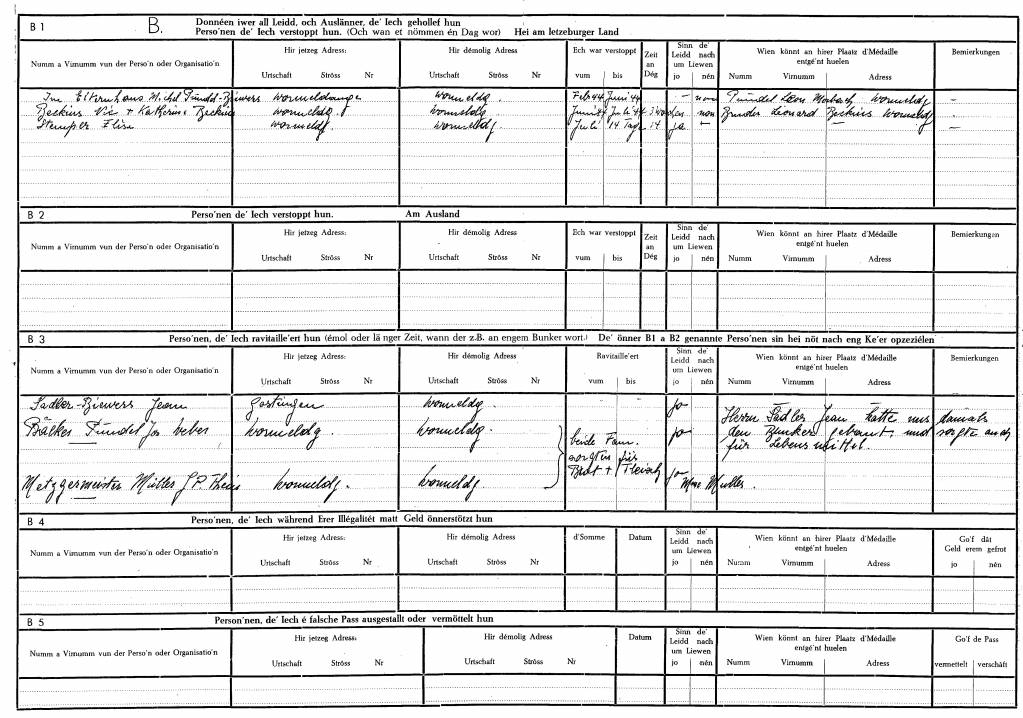 B 1 B. Donnéen iwer all Leidd, och Auslänner, de' Iech gehollef hun
Perso'nen de' Iech verstoppt hun. (Och wan et nömmen én Dag wor) Hei am letzeburger Land
Numm a Virnumm vun der Perso'n oder Organisatio'n
Hir jetzeg Adress:
Urtschaft Ströss Nr
Hir démolig Adress
Urtschaft Ströss Nr
Ech war verstoppt
vum bis
Zeit an Dég
Sinn de' Leidd nach um Liewen
jo nén
Wien könnt an hirer Plaatz d'Médaille entgé'nt huelen
Numm Virnumm Adress
Bemierkungen
Im Elternhaus Michel Pündel-Ziewers Wormeldange Wormeldg. Feb 44 Juni 44 - non Pündel Léon Wormeldg -
Beckius Vic + Katherine Beckius Wormeldg. Wormeldg. Juni 44 Juli 44 non Léonard Beckius Wormeldg
Stemper Elise Wormeldg. Wormeldg. Juli 14 Tage 14 ja - -
B 2 Perso'nen de' Iech verstoppt hun. Am Ausland
Numm a Virnumm vun der Perso'n oder Organisatio'n
Hir jetzeg Adress:
Urtschaft Ströss Nr
Hir démolig Adress
Urtschaft Ströss Nr
Ech war verstoppt
vum bis
Zeit an Dég
Sinn de' Leidd nach um Liewen
jo nén
Wien könnt an hirer Plaatz d'Médaille entgé'nt huelen
Numm Virnumm Adress
Bemierkungen
B 3 Perso'nen, de' Iech ravitaille'ert hun (émol oder länger Zeit, wann der z.B. an engem Bunker wort.) De' önner B1 a B2 genannte Perso'nen sin hei nöt nach eng Ke'er opzeziélen
Numm a Virnumm vun der Perso'n oder Organisatio'n
Hir jetzeg Adress:
Urtschaft Ströss Nr
Hir démolig Adress
Urtschaft Ströss Nr
Ravitaille'ert
vum bis
Sinn de' Leidd nach um Liewen
jo nén
Wien könnt an hirer Plaatz d'Médaille entgé'nt huelen
Numm Virnumm Adress
Bemierkungen
Sadler-Ziewers Jean Gostingen Wormeldg. jo Herrn Sadler Jean hatte uns damals
Bäcker Pündel Jos Weber Wormeldg. Wormeldg. beide Fam. jo den Bunker gebaut, und sorgte auch
sorgten für für Lebensmittel.
Brot + Fleisch
Metzgermeister Müller J.P. Wormeldg. Wormeldg jo Mme Muller.
B 4 Perso'nen, de' Iech während Erer Illégalitét matt Geld önnerstötzt hun
Numm a Virnumm vun der Perso'n oder Organisatio'n
Hir jetzeg Adress:
Urtschaft Ströss Nr
Hir démolig Adress
Urtschaft Ströss Nr
d'Somme
Datum
Sinn de' Leidd nach um Liewen
jo nén
Wien könnt an hirer Plaatz d'Médaille entgé'nt huelen
Numm Virnumm Adress
Go'f dât Geld erem gefrot
jo nén
B 5 Person'nen, de' Iech é falsche Pass ausgestallt oder vermöttelt hun
Numm a Virnumm vun der Perso'n oder Organisatio'n
Hir jetzeg Adress:
Urtschaft Ströss Nr
Hir démolig Adress
Urtschaft Ströss Nr
Datum
Sinn de' Leidd nach um Liewen
jo nén
Wien könnt an hirer Plaatz d'Médaille entgé'nt huelen
Numm Virnumm Adress
Go'f de Pass
vermettelt verschâft